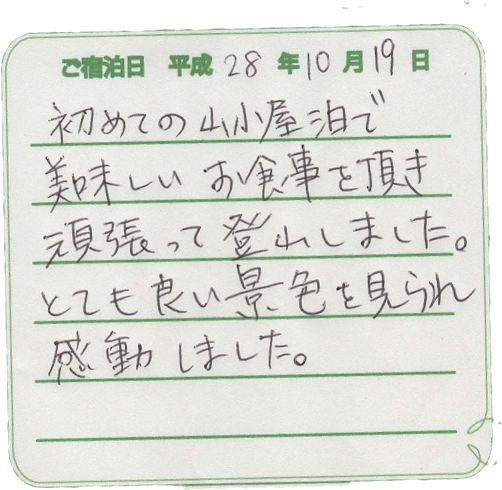 ご宿泊日 平成28年10月19日
初めての山小屋泊で
美味しいお食事を頂き
頑張って登山しました。
とても良い景色を見られ
感動しました。